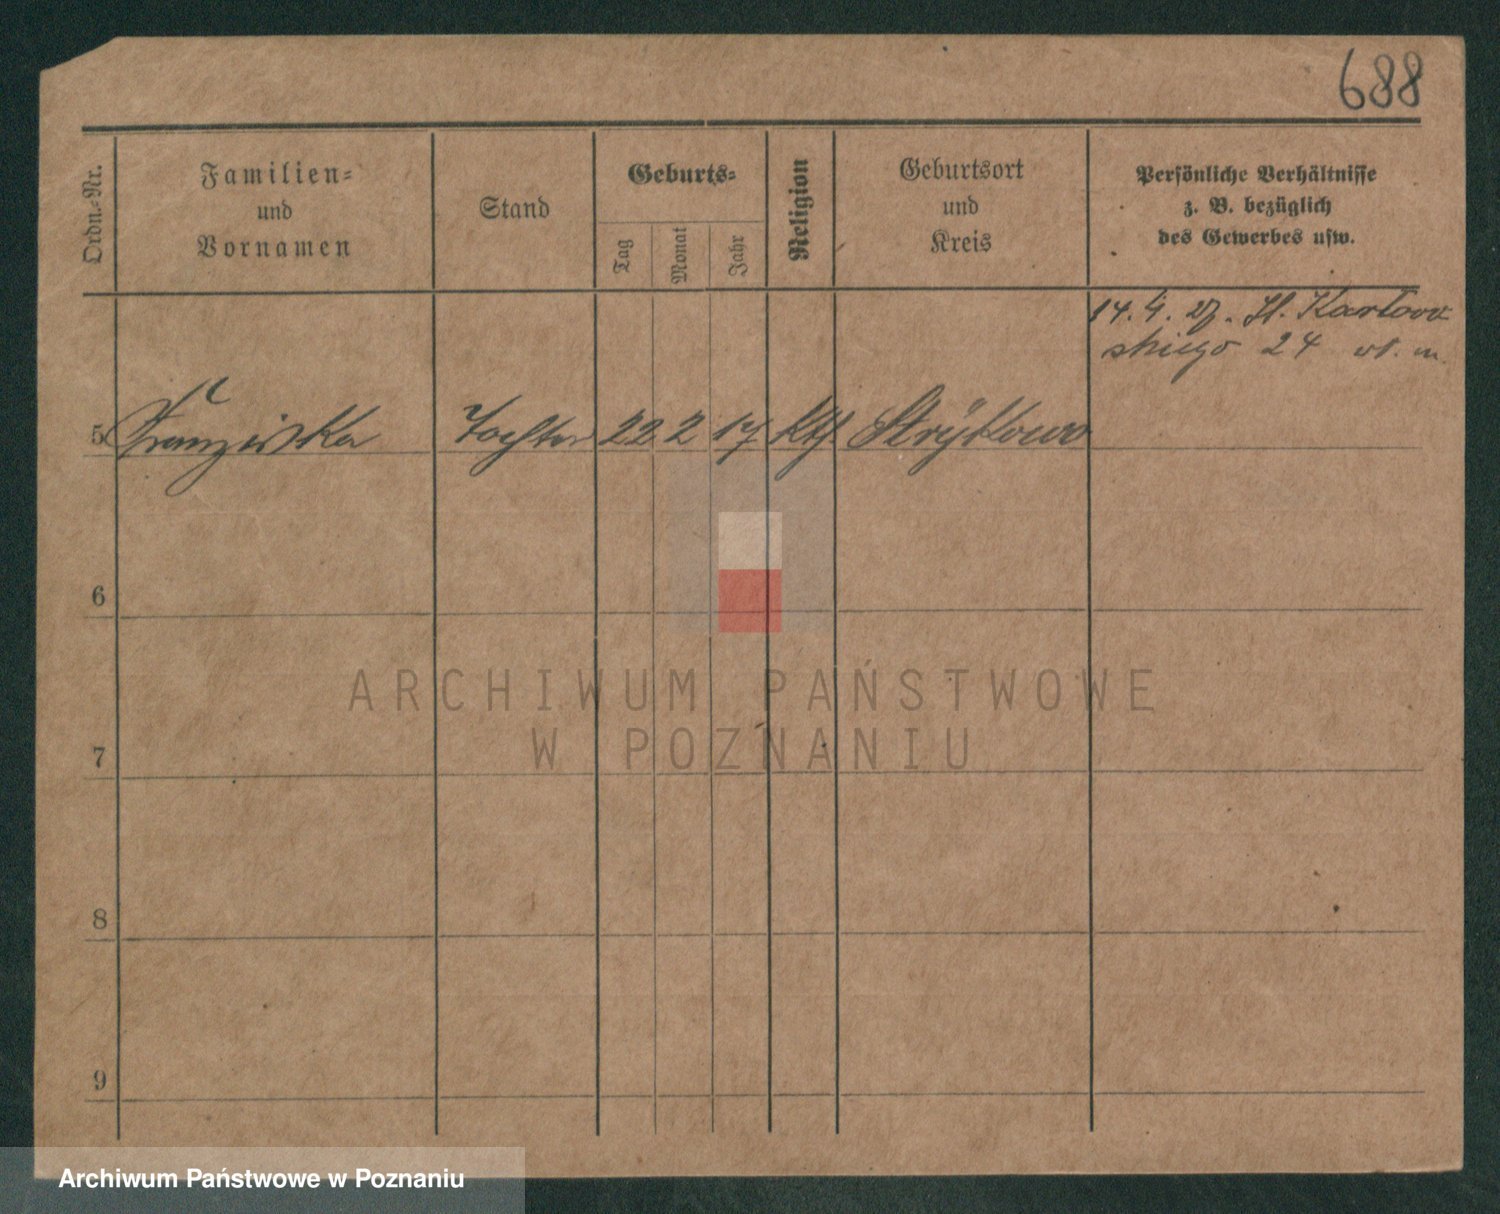 688
Ordn.-Nr.
Familien-
und
Vornamen
Stand
Geburts-
Tag
Monat
Jahr
Religion
Geburtsort
und
Kreis
Persönliche Verhältnisse
z. B. bezüglich
des Gewerbes usw.
14. 4. 27. Kartow
skiego 24 wł. m.
5 Franziska Tochter 22 2 17 kth Strÿkowo
6
ARCHIWUM PAŃSTWOWE
W POZNANIU
7
8
9
Archiwum Państwowe w Poznaniu